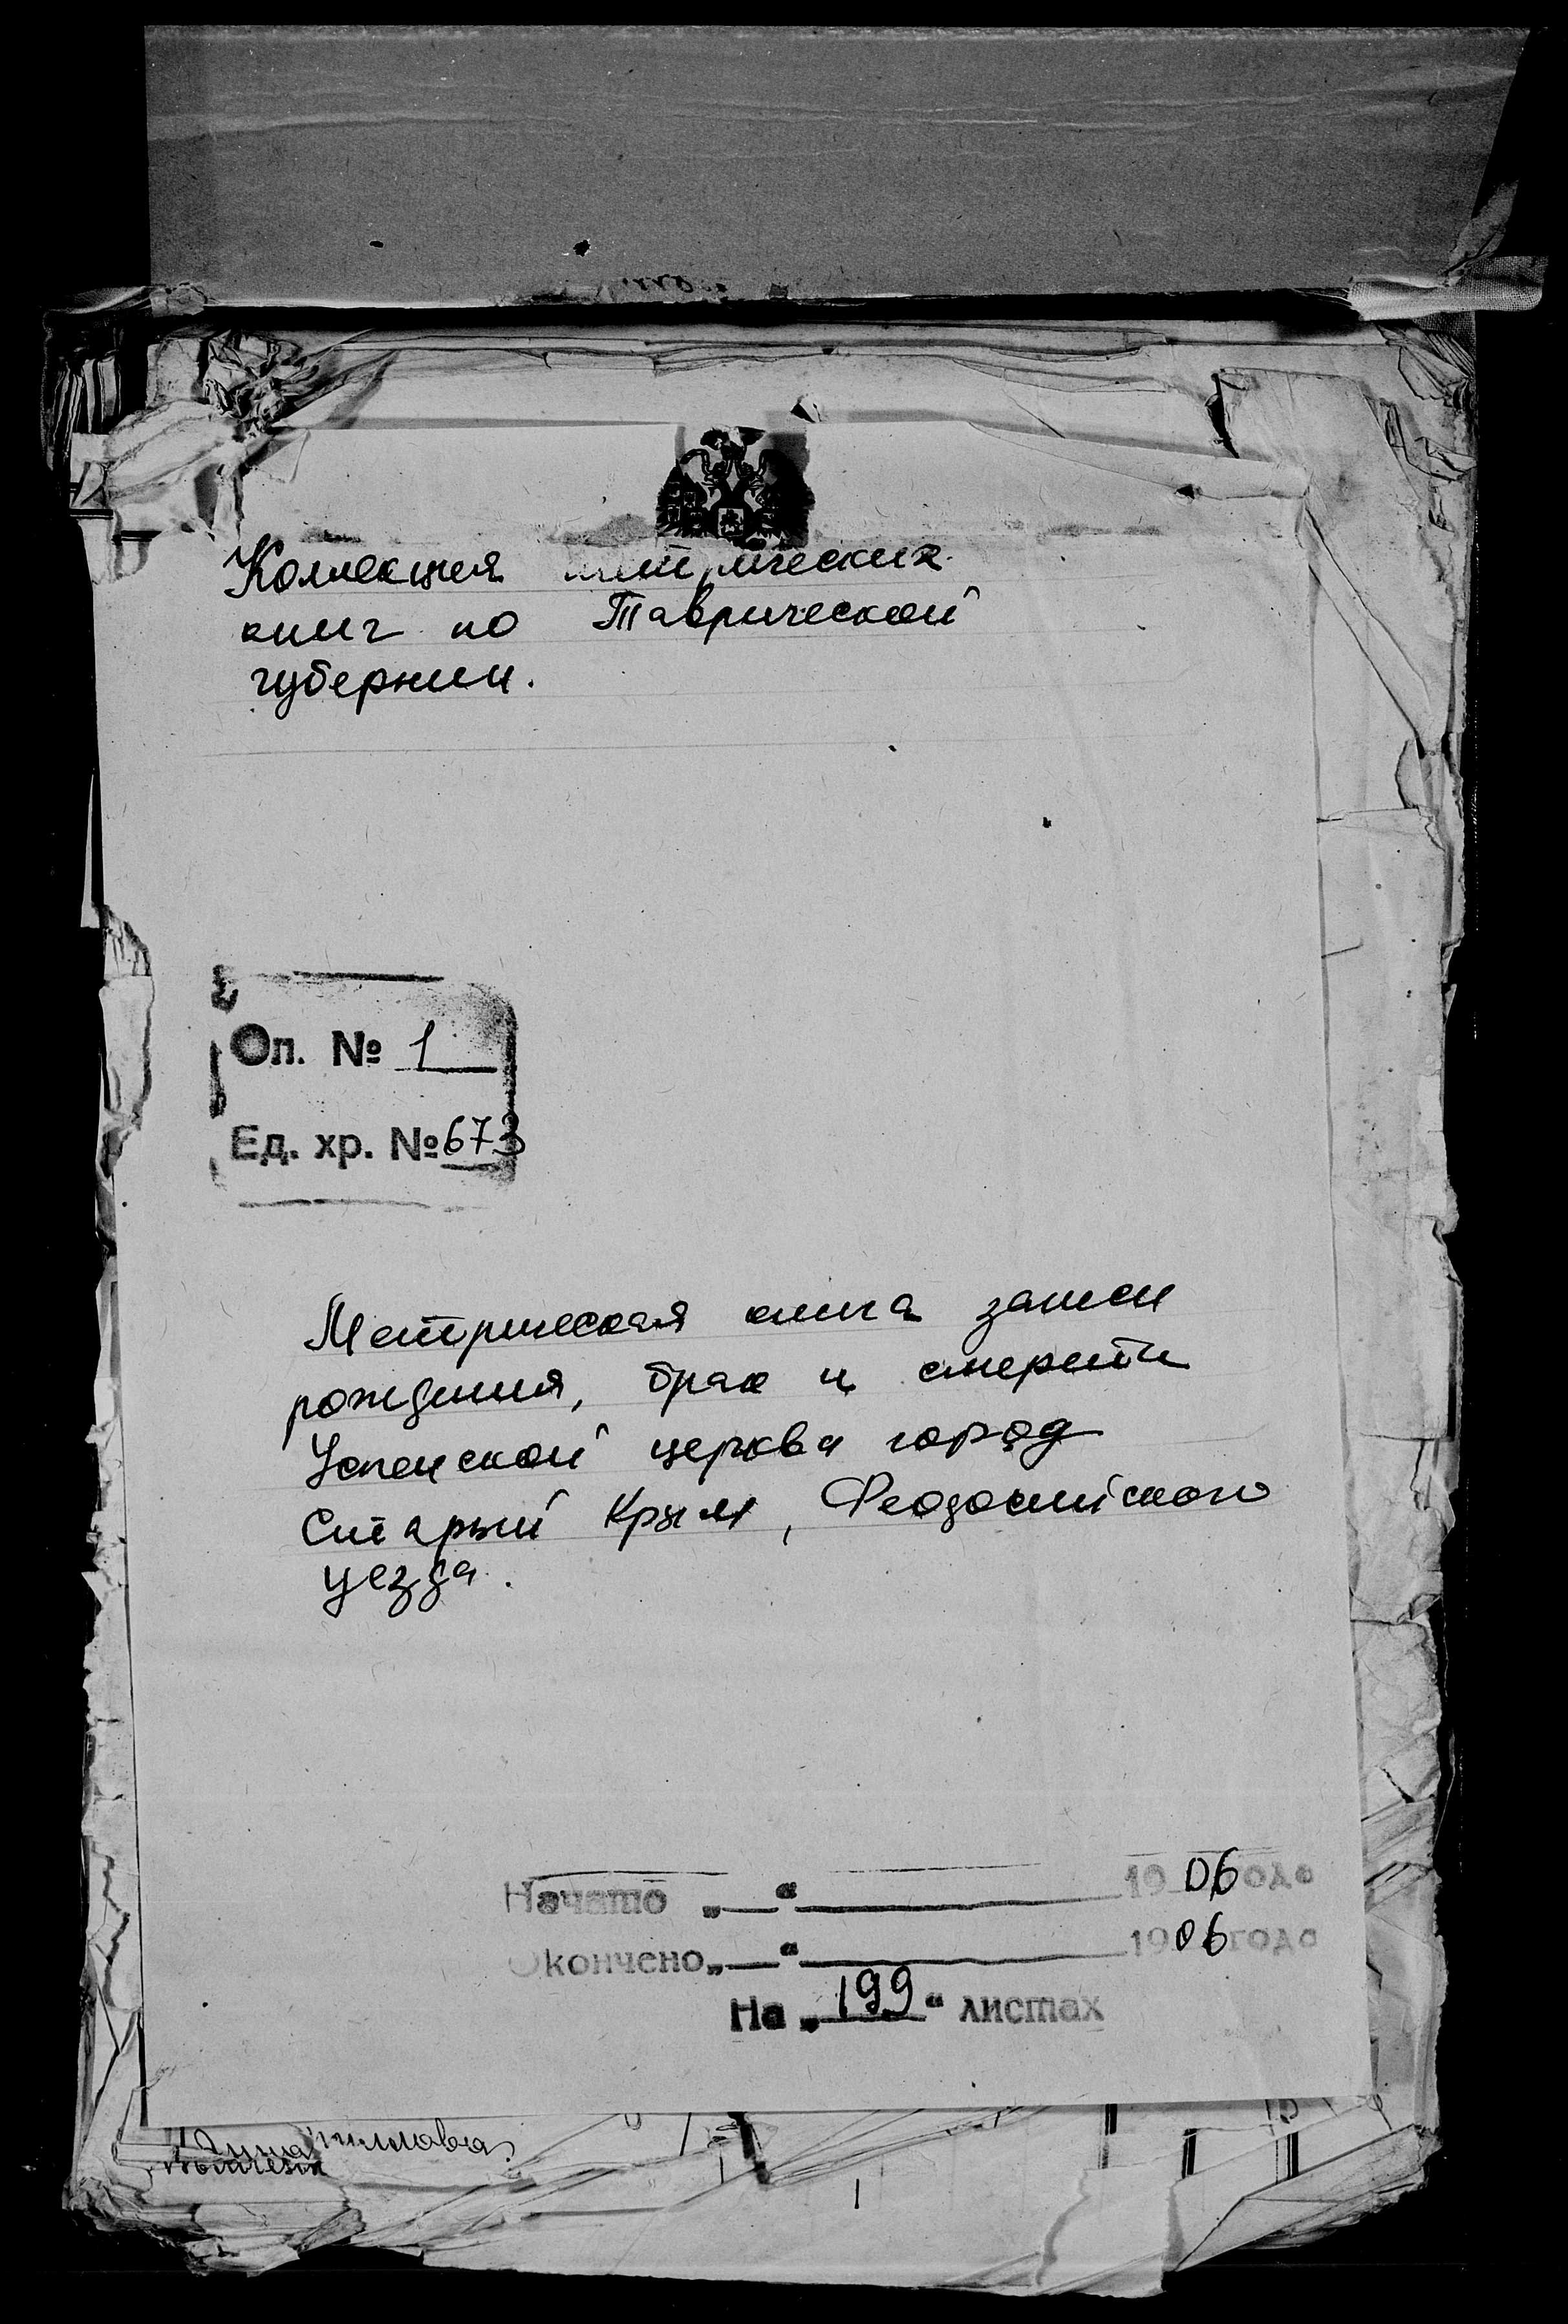 Коллекция метрических
книг по Таврической
губернии.
Оп. № 1
Ед. хр. № 673
Метрическая книга записи
рождения, брак и смерти
Успенской церкви город
Старый Крым, Феодосийского
уезда.
Начато „ “ 1906 года
Окончено „ “ 1906 года
На „199“ листах